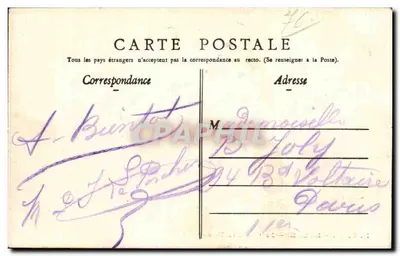 CARTE POSTALE
Tous les pays étrangers n'acceptent pas la correspondance au recto. (Se renseigner à la Poste).
Correspondance
Adresse
A Bientot
Mademoiselle
B Joly
94 Bd Voltaire
Paris
11er
CPHRAPHIC